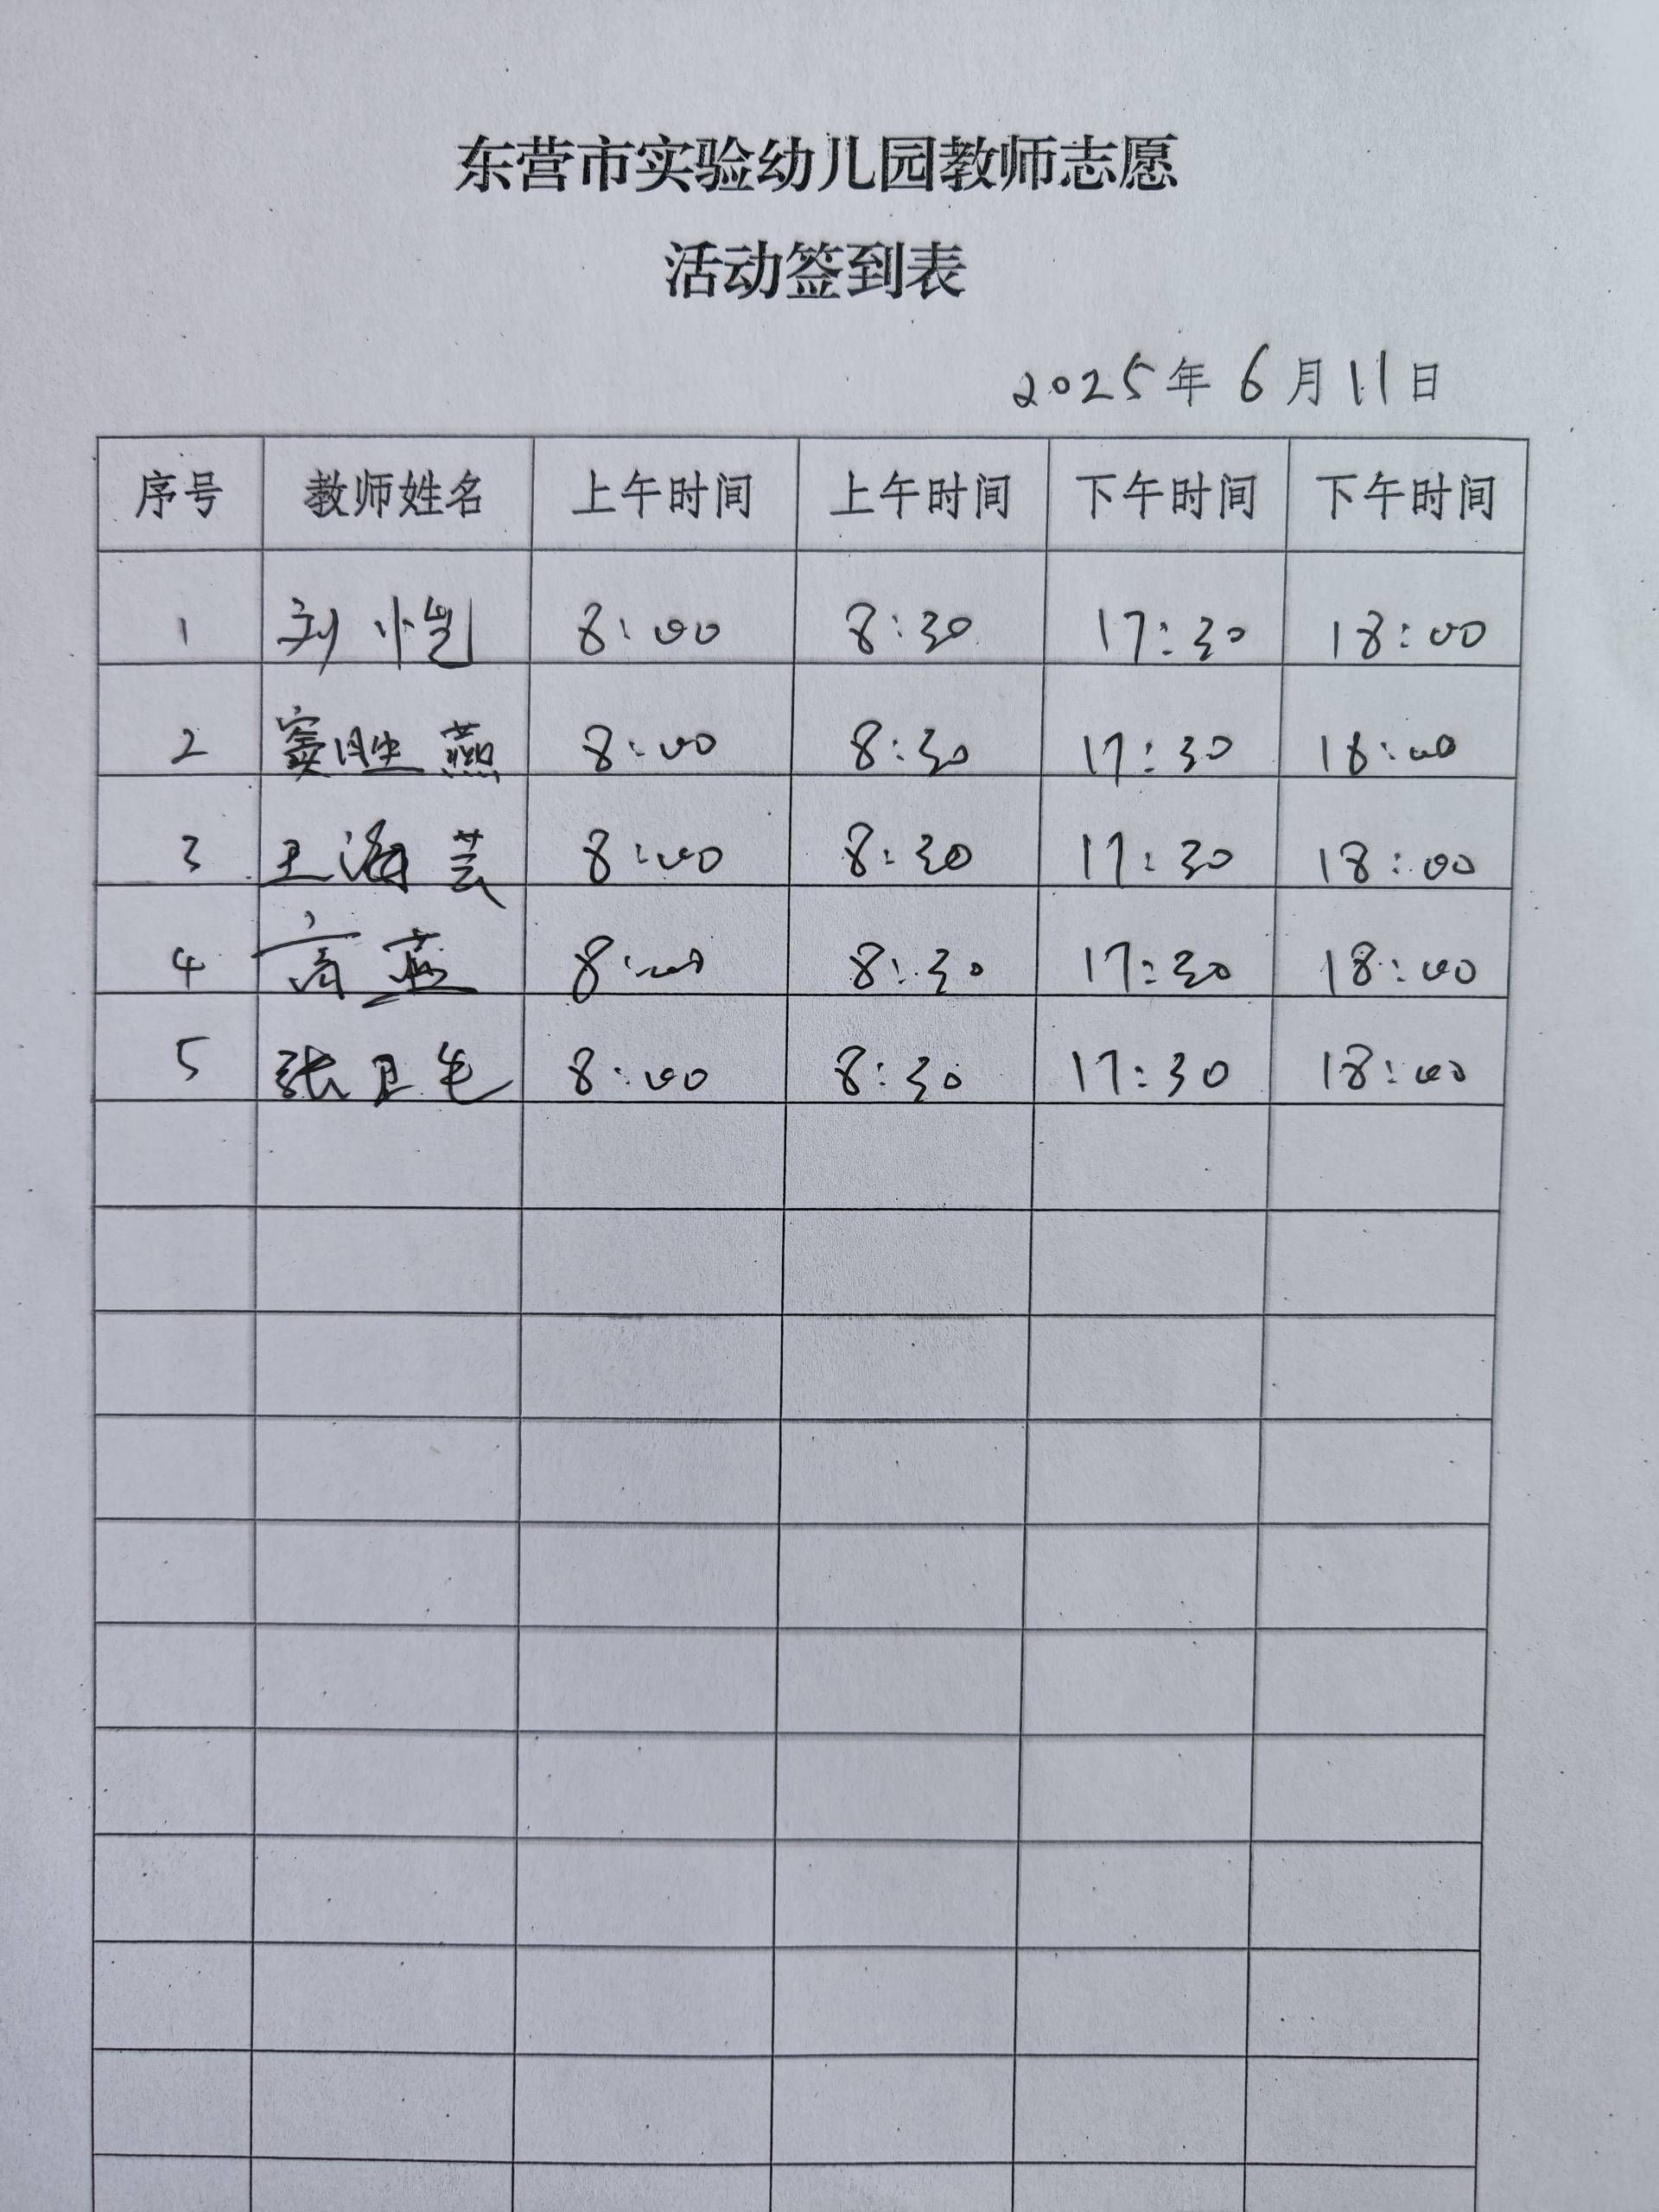 东营市实验幼儿园教师志愿
活动签到表
2025年6月11日
序号 教师姓名 上午时间 上午时间 下午时间 下午时间
1 刘小岂 8:00 8:30 17:30 18:00
2 窦胜燕 8:00 8:30 17:30 18:00
3 王海芸 8:00 8:30 17:30 18:00
4 高燕 8:00 8:30 17:30 18:00
5 张卫 8:00 8:30 17:30 18:00